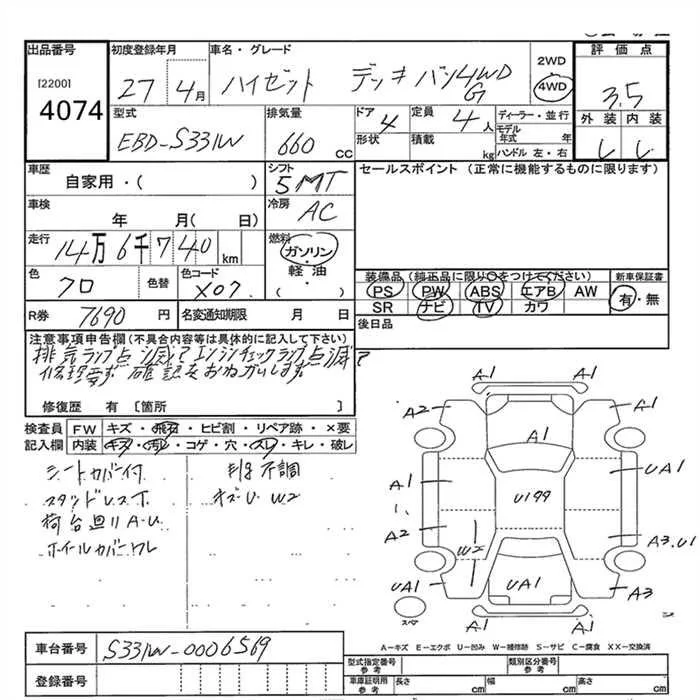 出品番号
[2200]
4074
初度登録年月
27 4月
車名・グレード
ハイゼット デッキバン4WD
G
2WD
4WD
評価点
3.5
外装 内装
型式
EBD-S331W
排気量
660 cc
ドア
4
定員
4人
形状
積載
kg
ディーラー・並行
モデル年式 年
ハンドル 左・右
車歴
自家用・( )
シフト
5MT
セールスポイント (正常に機能するものに限ります)
車検
年 月( 日)
冷房
AC
走行
14万6千740km
燃料
ガソリン
軽油
・( )
色
クロ
色替
色コード
X07
装備品 (純正品に限り○をつけてください)
PS PW ABS エアB AW
SR ナビ TV カワ
新車保証書
有・無
R券
7690円
名変通知期限 月 日
後日品
注意事項申告欄(不具合内容等は具体的に記入して下さい)
排気ランプ点滅 エンジンチェックランプ点滅
修理要す 確認をおねがいします
修復歴 有 [箇所 ]
検査員記入欄
FW キズ・飛石・ヒビ割・リペア跡・×要
内装 キズ・汚レ・コゲ・穴・スレ・キレ・破レ
シートカバー付
スタッドレス
荷台廻りA・U
ホイールカバーワレ
不調
W2
A1
A1
A2
A1
A1
A1
UA1
U199
A2
W2
A3.U1
UA1
UA1
A3
A1
A1
スペア
A-キズ E-エクボ U-凹み W-補修跡 S-サビ C-腐食 XX-交換済
車台番号
S331W-0006569
登録番号
型式指定番号 参考
類別区分番号 参考
車庫証明用 参考
長さ cm
幅 cm
高さ cm